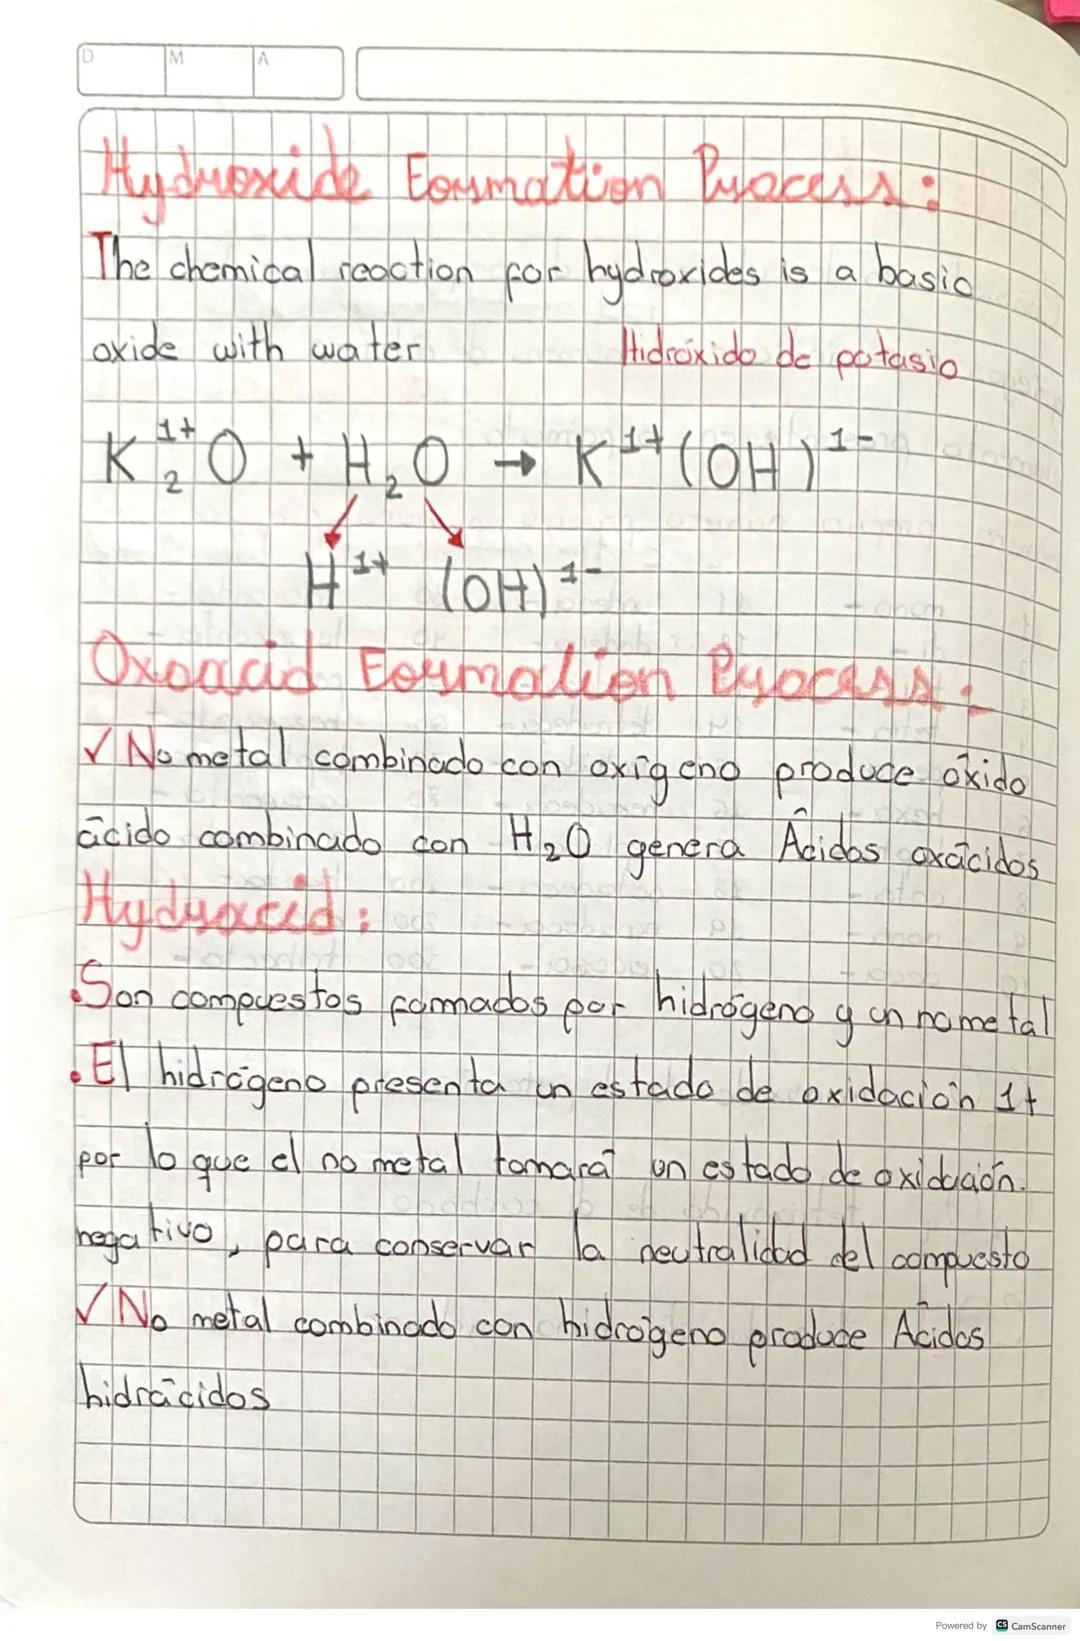 D M A
Hydroxide Formation Process:
The chemical reaction for hydroxides is a basic
oxide with water
Hidróxido de potasio
K₂¹⁺O + H₂O → K¹⁺(OH)¹⁻
H¹⁺ (OH)¹⁻
Oxoacid Formation Process:
✓ No metal combinado con oxígeno produce óxido
ácido combinado con H₂O genera Ácidos oxácidos
Hydracid:
• Son compuestos formados por hidrógeno y un no metal
• El hidrógeno presenta un estado de oxidación 1+
por lo que el no metal tomará un estado de oxidación.
negativo, para conservar la neutralidad del compuesto
✓ No metal combinado con hidrógeno produce Ácidos
hidrácidos
Powered by CS CamScanner